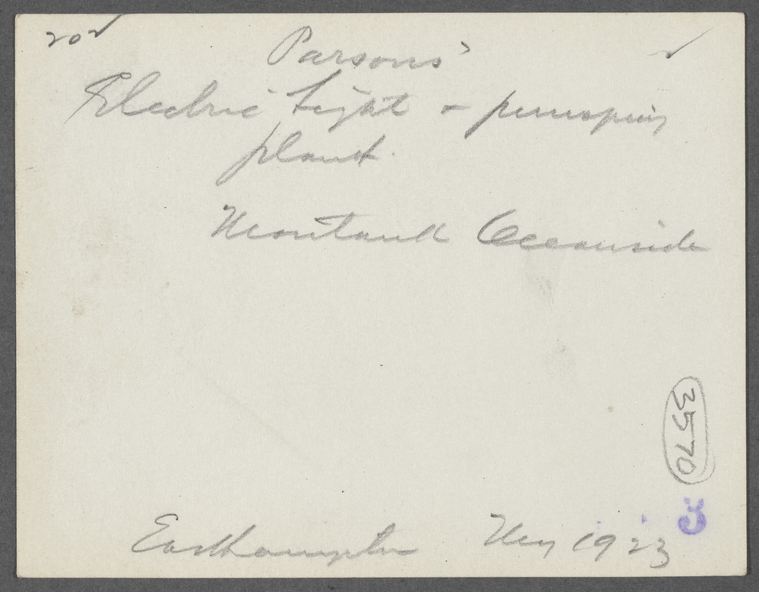 202
Parsons'
Electric Light + pumping
plant.
Montauk Oceanside
3570
Easthampton May 1923